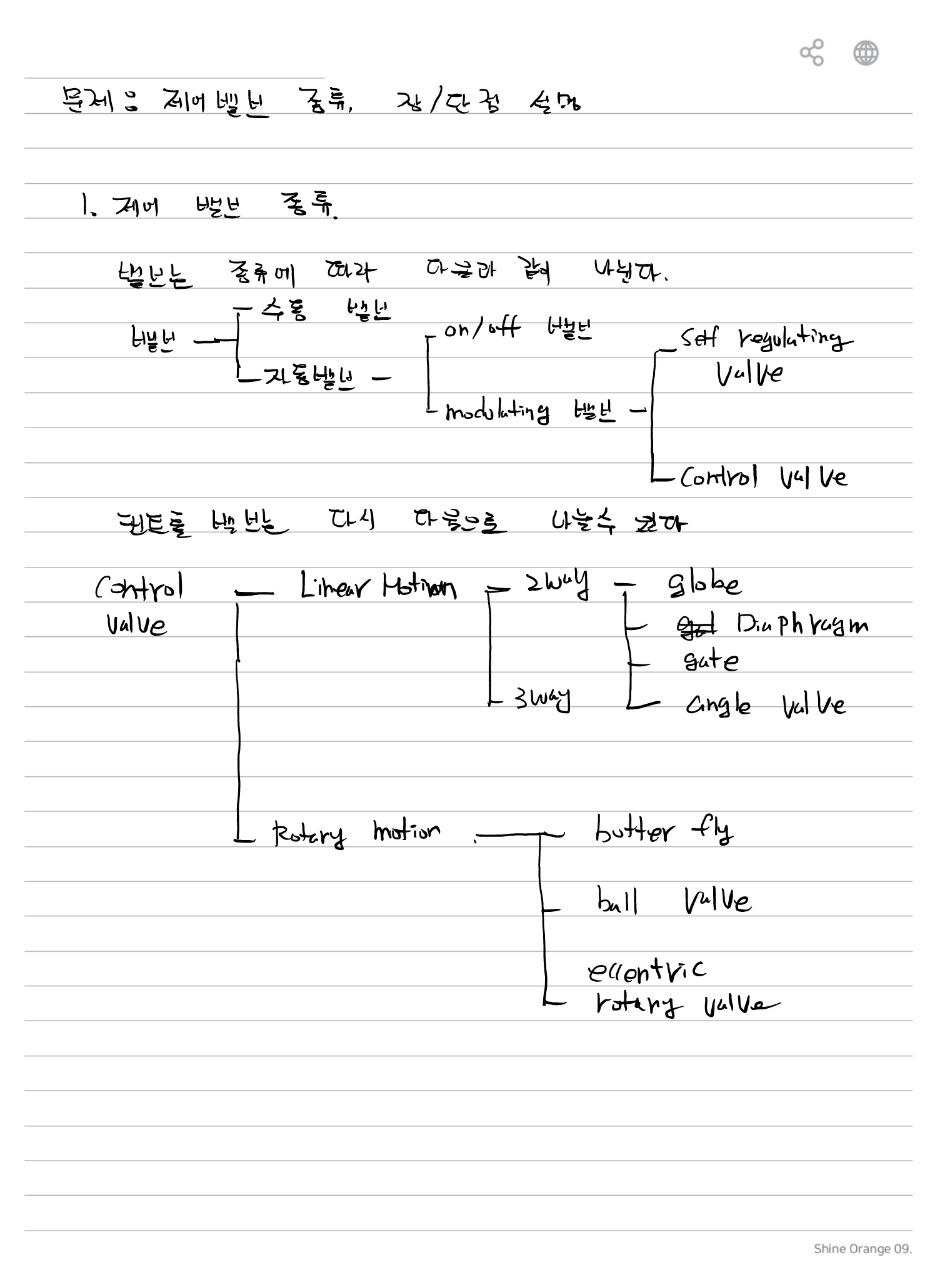 문제 ㅇ 제어밸브 종류, 장/단점 설명
1. 제어 밸브 종류.
밸브는 종류에 따라 다음과 같이 나뉜다.
밸브
수동 밸브
자동밸브
on/off 밸브
modulating 밸브
Self regulating
Valve
Control Valve
컨트롤 밸브는 다시 다음으로 나눌수 있다
Control
Valve
Linear Motion
2way
globe
Diaphragm
gate
3way
angle valve
Rotary motion
butter fly
ball valve
eccentric
rotary valve
Shine Orange 09.